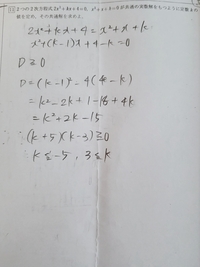 2つの2次方程式 2x²+kx+4=0, x²+x+k=0 が共通の実数解をもつように定数kの
値を定め, その共通解を求めよ。
2x²+kx+4=x²+x+k
x²+(k-1)x+4-k=0
D≧0
D=(k-1)²-4(4-k)
=k²-2k+1-16+4k
=k²+2k-15
(k+5)(k-3)≧0
k≦-5, 3≦k